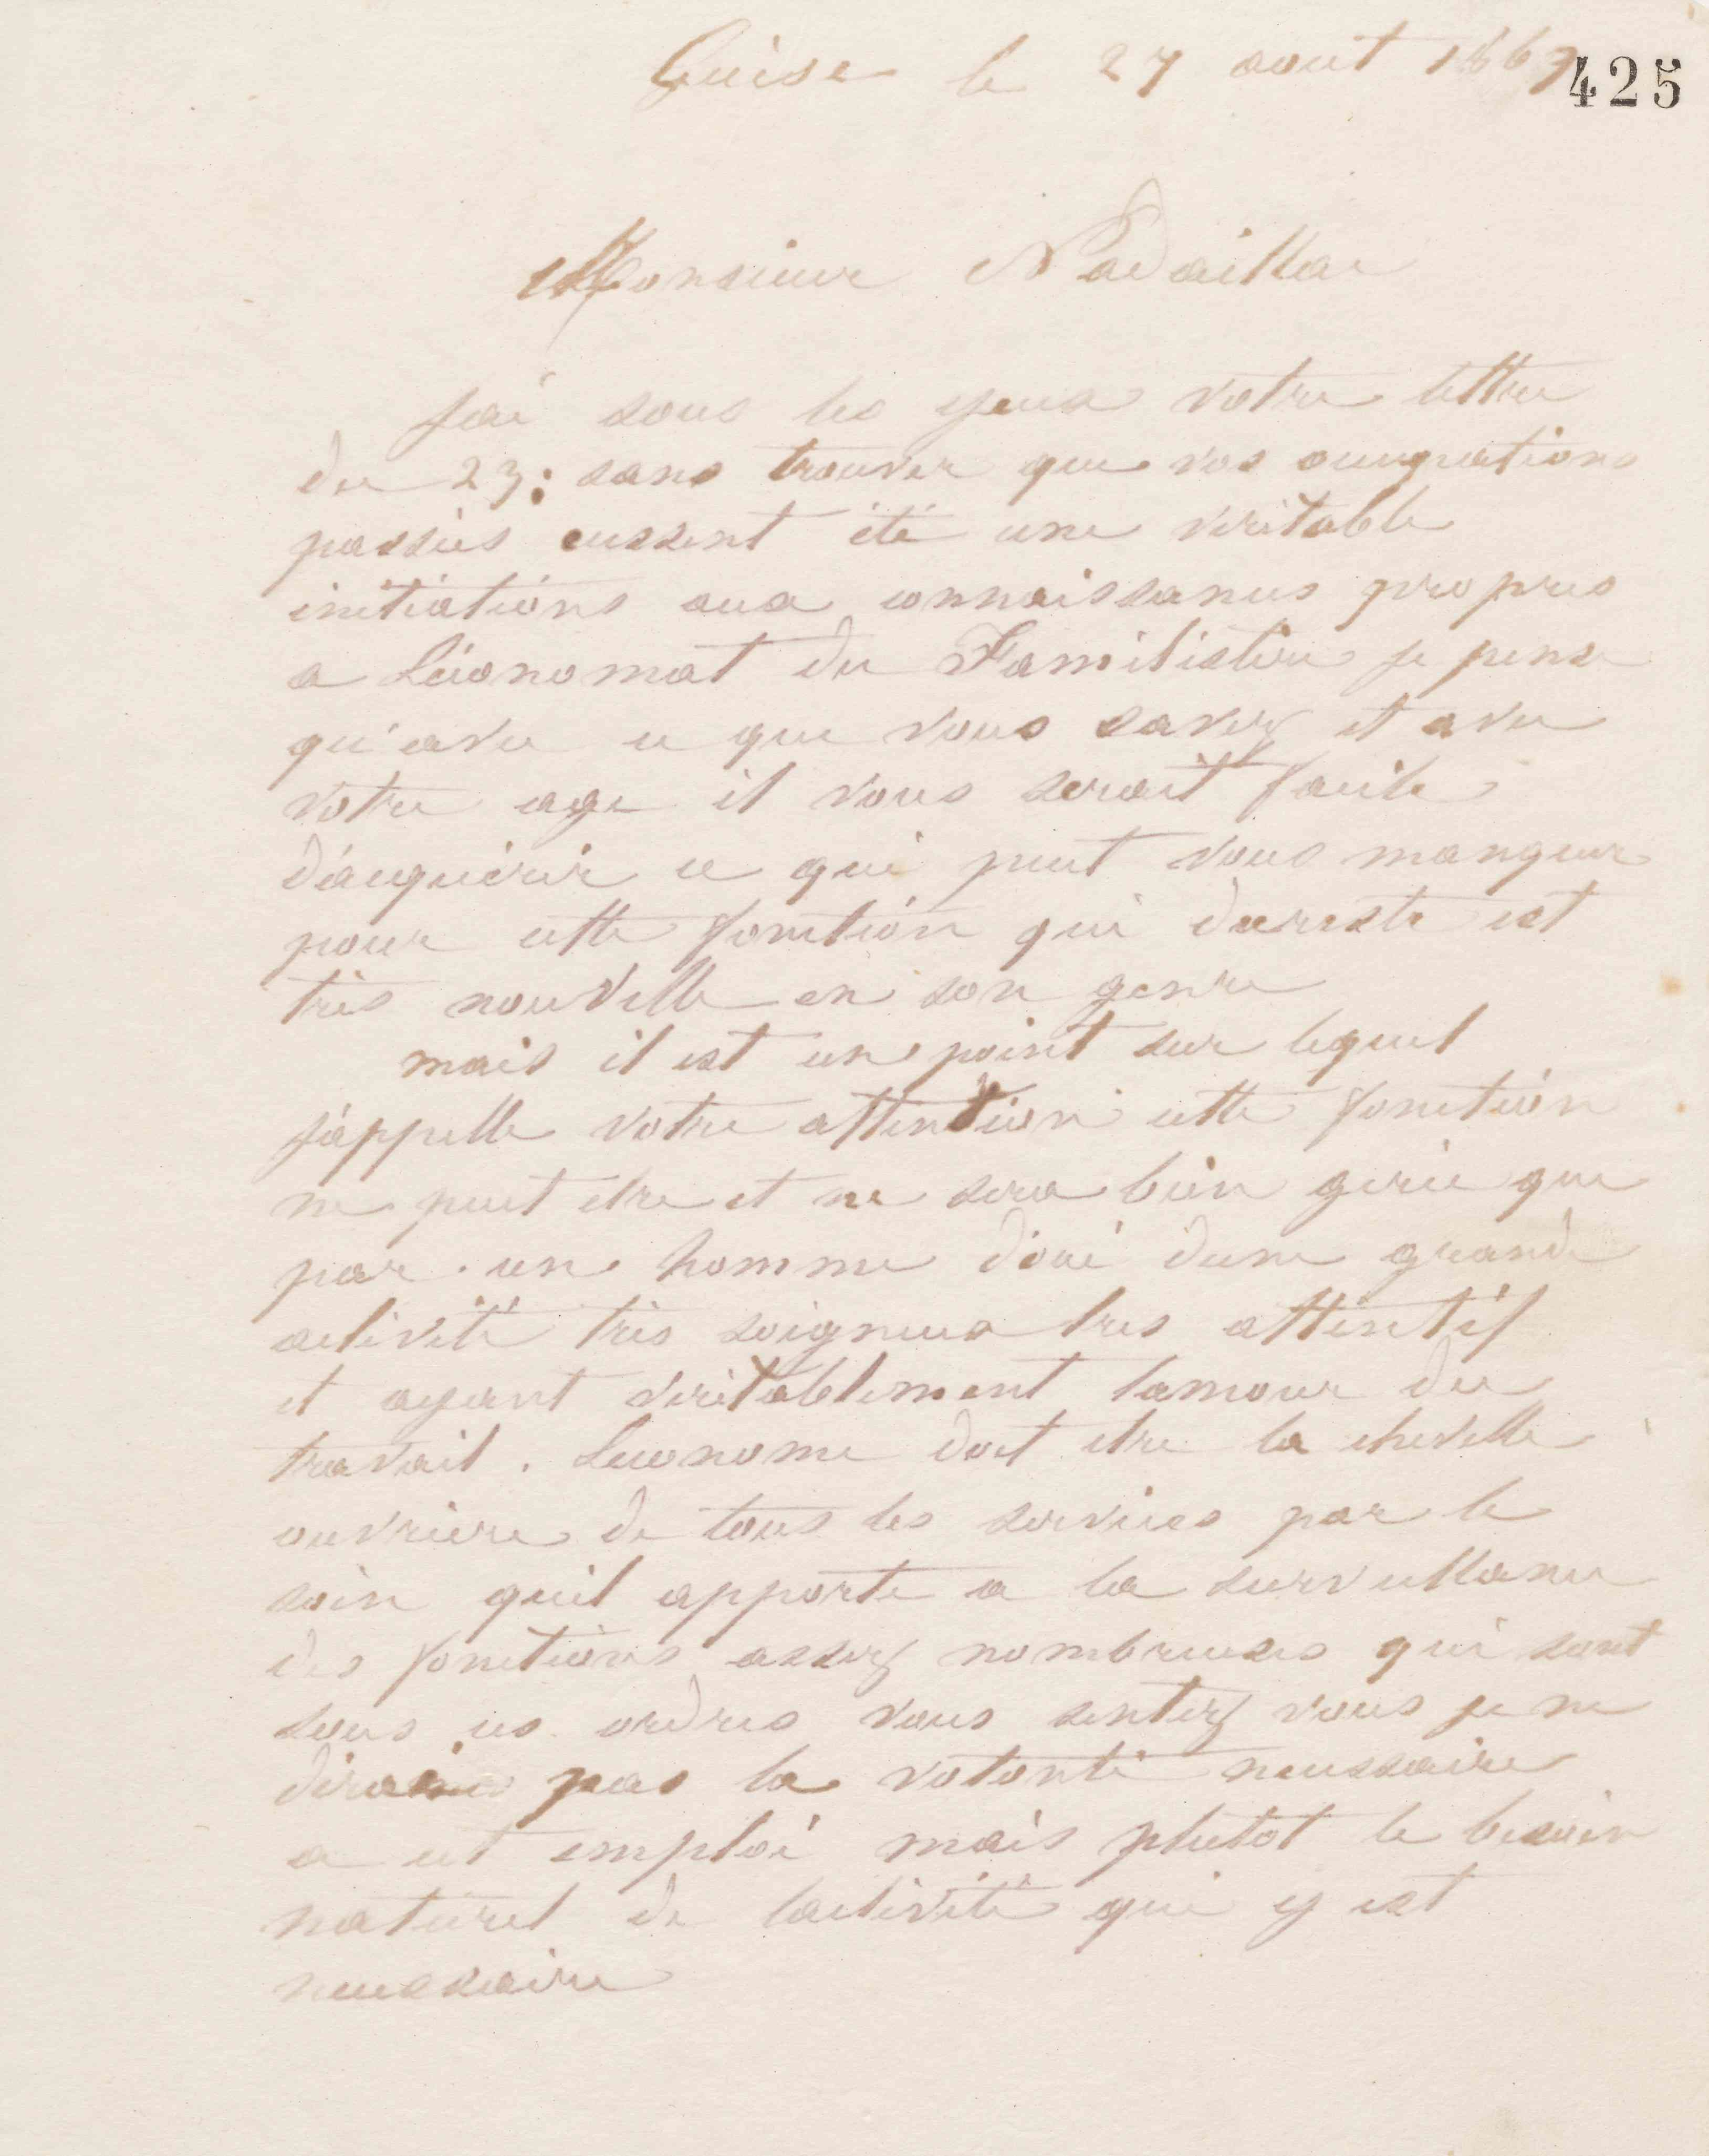 Guise le 27 aout 1863
425
Monsieur Nadaillac
J'ai sous les yeux votre lettre
du 23; sans trouver que vos occupations
passées eussent été une veritable
initiations aux connaissances propres
a L'économat du Familistère je pense
qu'avec ce que vous savez et avec
votre age il vous serait facile
d'acquérir ce qui peut vous manquer
pour cette fonction qui dureste est
très nouvelle en son genre
mais il est un point sur lequel
j'appelle votre attention cette fonction
ne peut etre et ne sera bien gerée que
par un homme doué dune grande
activité très soigneux tres attentif
et ayant veritablement lamour du
travail. Leconome doit etre la cheville
ouvriere de tous les services par le
soin quil apporte a la surveillance
des fonctions assez nombreuses qui sont
sous ses ordres vous sentez vous je ne
dirais pas la volonté necessaire
a cet emploi mais plutot le besoin
naturel de lactivité qui y est
necessaire